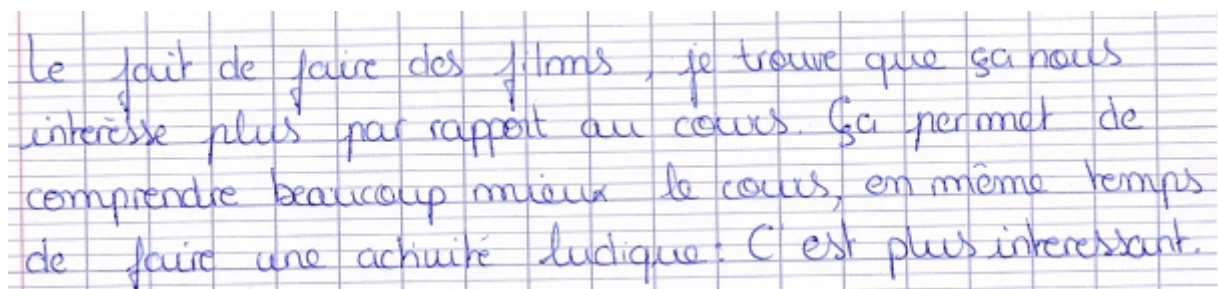 Le fait de faire des films, je trouve que ça nous
interèsse plus par rapport au cours. Ça permet de
comprendre beaucoup mieux le cours, en même temps
de faire une activité ludique. C'est plus interessant.